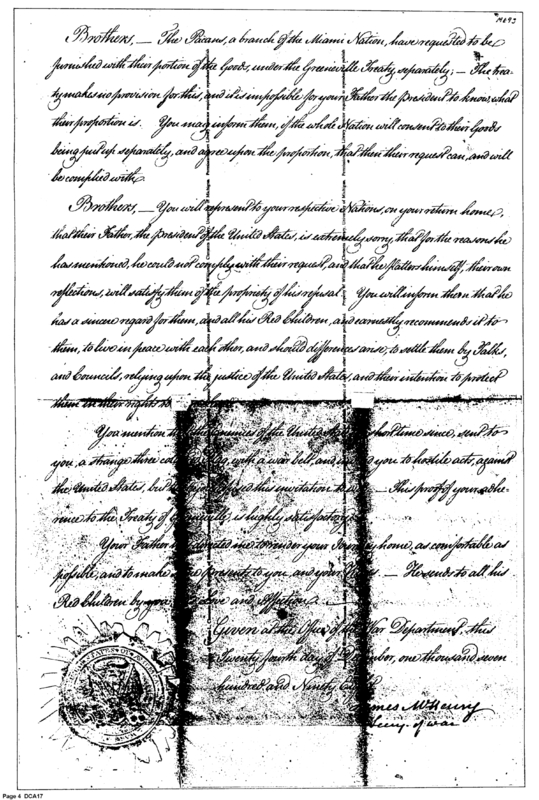 Brothers, — The Pacans, a branch of the Miami Nation, have requested to be
furnished with their portion of the Goods, under the Greenville Treaty, separately; — The trea-
ty makes no provision for this, and it is impossible for your Father the President to know, what
their proportion is. You may inform them, if the whole Nation will consent to their Goods
being put up separately, and agree upon the proportion, that then their request can, and will
be complied with.
Brothers, — You will represent to your respective Nations, on your return home,
that their Father, the President of the United States, is extremely sorry, that for the reasons he
has mentioned, he could not comply with their request, and that he flatters himself, their own
reflections, will satisfy them of the propriety of his refusal. You will inform them that he
has a sincere regard for them, and all his Red Children, and earnestly recommends it to
them, to live in peace with each other, and should differences arise, to settle them by Talks,
and Councils, relying upon the justice of the United States, and their intention to protect
them in their rights
You mention of the United short time since, sent to
you, a strange three with a war belt, and you to hostile acts, against
the United States, this invitation to This proof of your adhe-
rence to the Treaty of is highly satisfactory
Your Father me to render your home, as comfortable as
possible, and to make presents to you, and your — He sends to all his
Red Children by you, Love and Affection. —
Given at the Office of the War Department, this
Twenty fourth day of one thousand seven
hundred and Ninety
James McHenry
of war
Page 4 DCA17